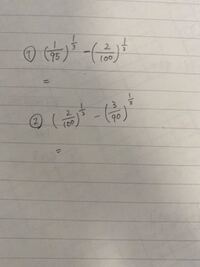 ① (1/95)^(1/3) - (2/100)^(1/3)
=
② (2/100)^(1/3) - (3/90)^(1/3)
=